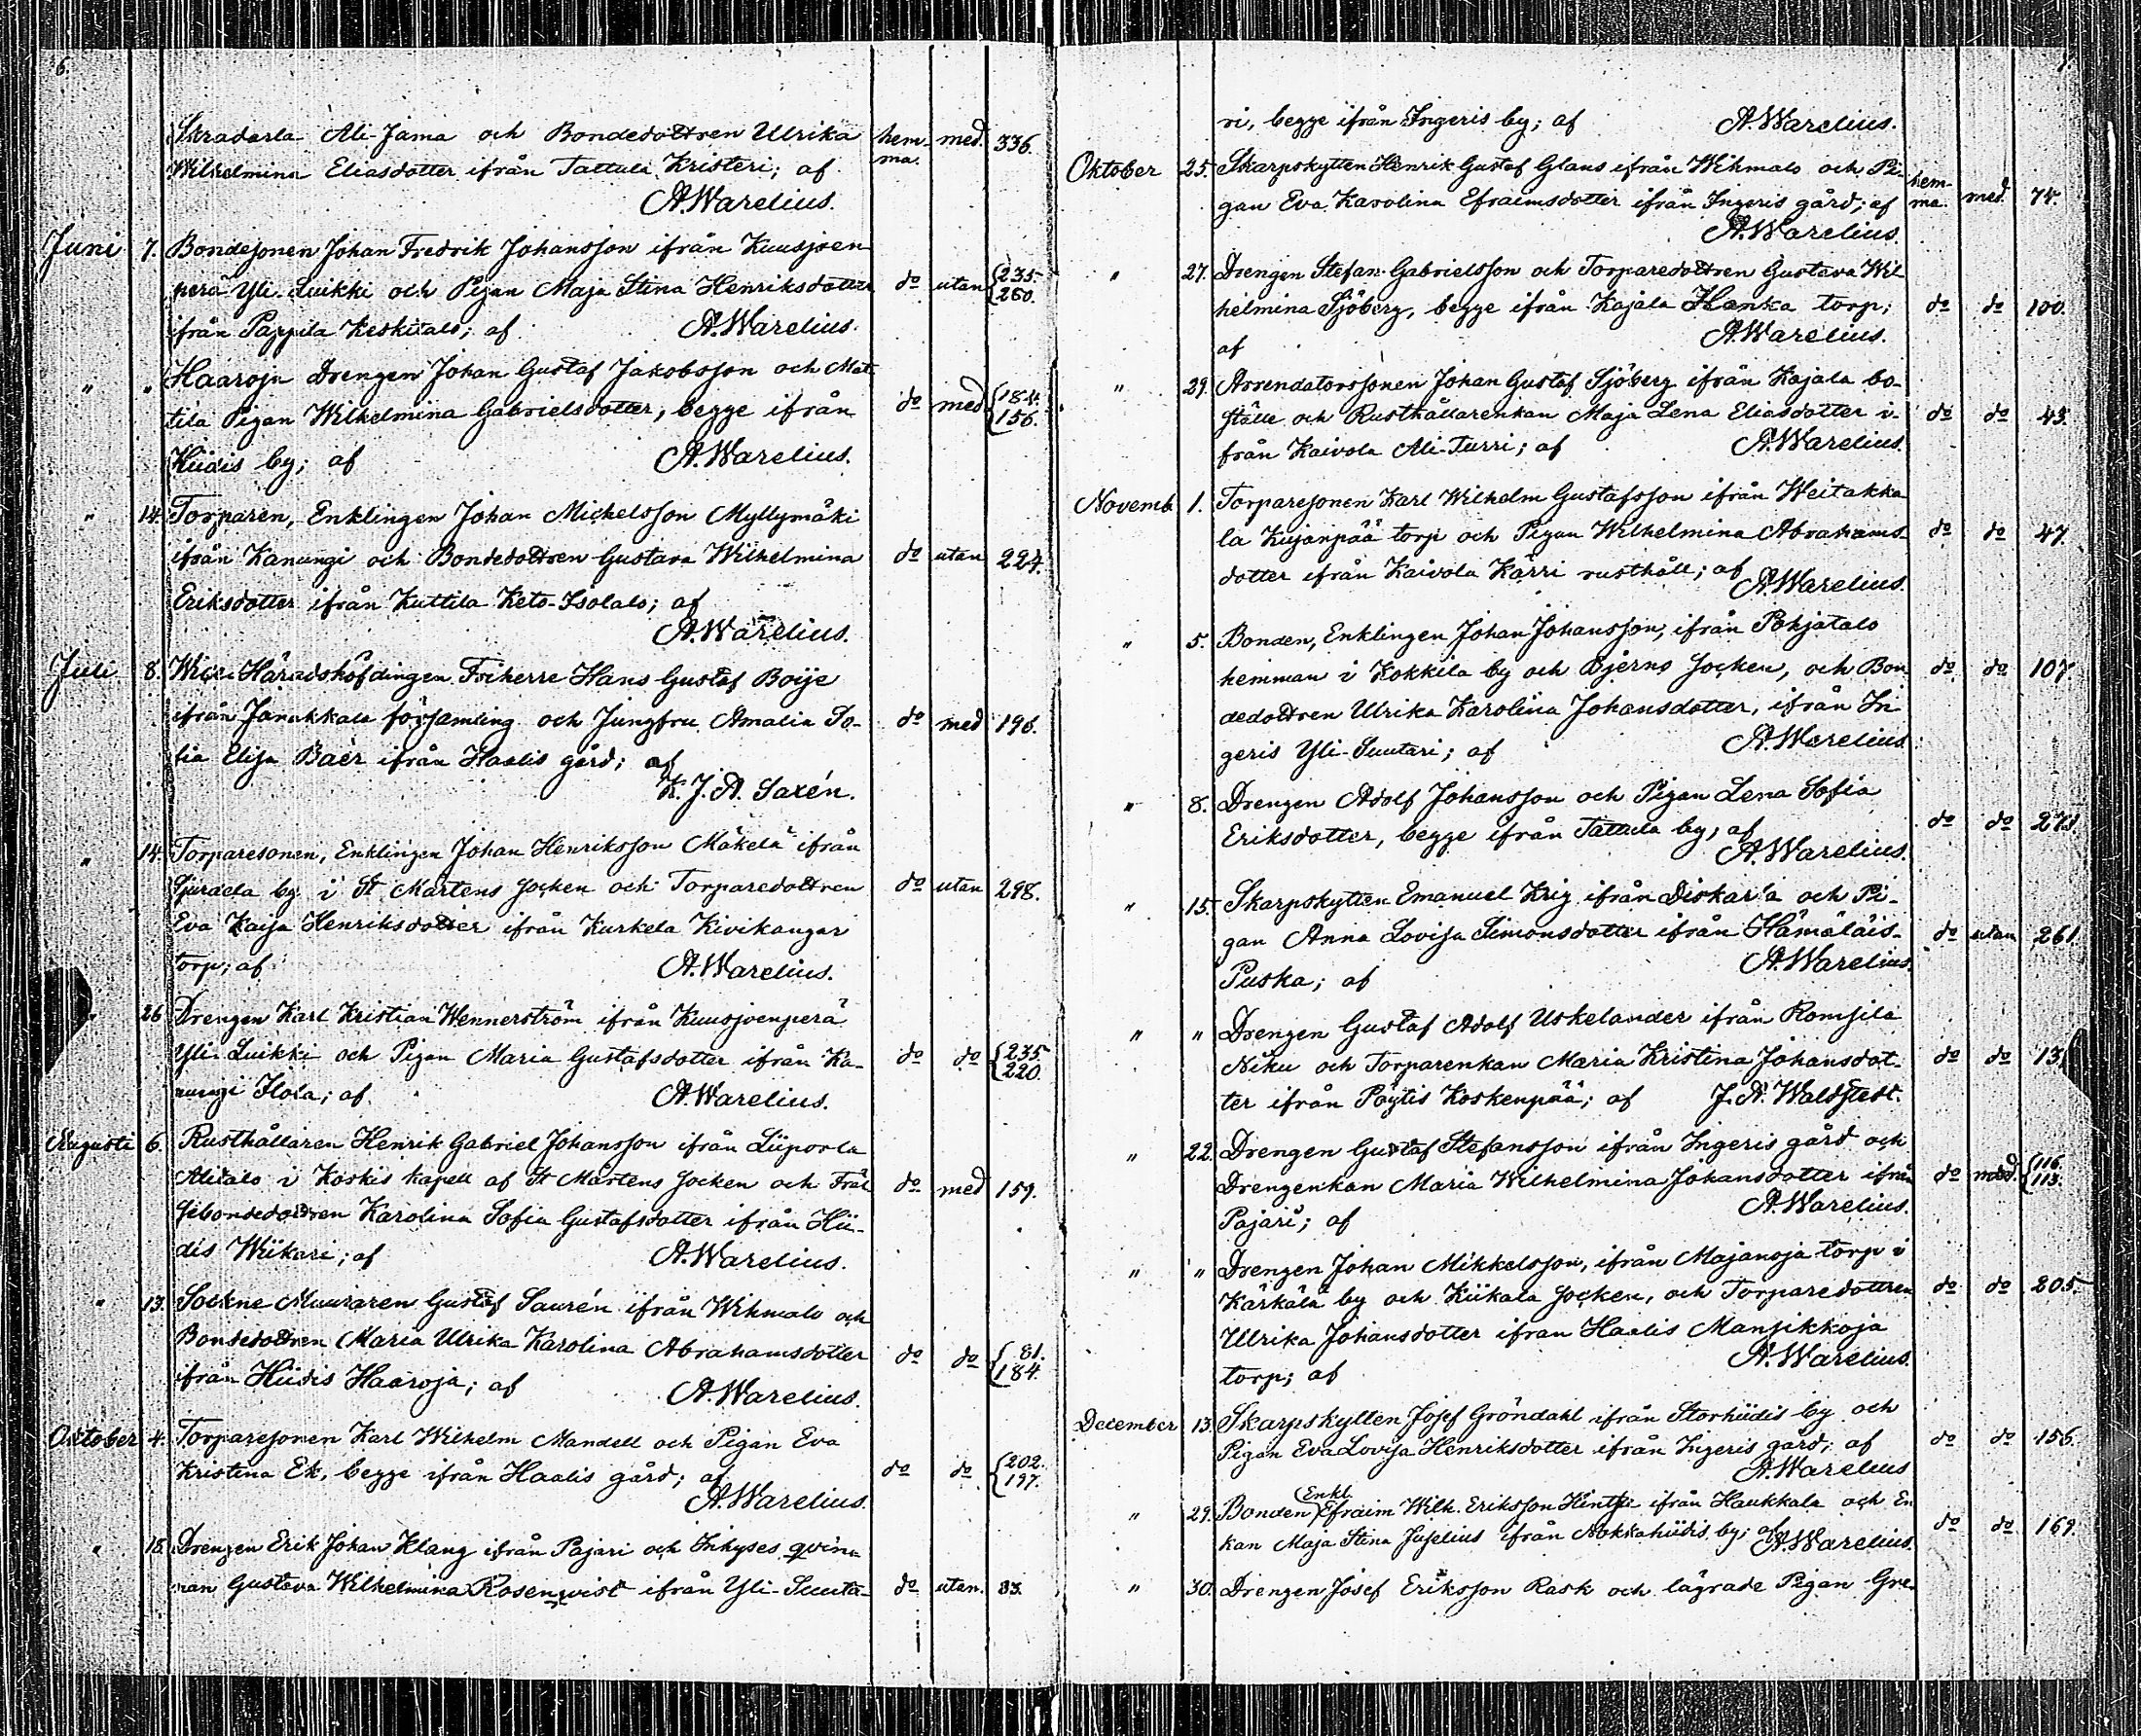 6.
Skradarla Ali-Jama och Bondedottren Ulrika hem- med. 336.
Wilhelmina Eliasdotter ifrån Tattula Kristeri; af ma.
A. Warelius.
Juni 7. Bondesonen Johan Fredrik Johansson ifrån Kuusjoen-
perä Yli-Luikki och Pigan Maja Stina Henriksdotter do utan {235. 260.
ifrån Pappila Keskitalo; af A. Warelius.
" " Haaroja Drengen Johan Gustaf Jakobsson och Mat-
tila Pigan Wilhelmina Gabrielsdotter, begge ifrån do med {184. 156.
Hiidis by; af A. Warelius.
" 14. Torparen, Enklingen Johan Mickelsson Myllymäki
ifrån Kanungi och Bondedottren Gustava Wilhelmina do utan 224.
Eriksdotter ifrån Kuttila Keto-Isotalo; af
A. Warelius.
Juli 8. Wice Häradshöfdingen Friherre Hans Gustaf Boije
ifrån Janakkala församling och Jungfru Amalia So- do med 196.
fia Elisa Baër ifrån Haalis gård; af
K. J. A. Saxén.
" 14. Torparesonen, Enklingen Johan Henriksson Mäkelä ifrån
by i St Mårtens socken och Torparedottren do utan 298.
Eva Kaisa Henriksdotter ifrån Kurkela Kivikangar
torp; af A. Warelius.
" 26 Drengen Karl Kristian Wennerström ifrån Kuusjoenperä
Yli-Luikki och Pigan Maria Gustafsdotter ifrån Ka- do do {235. 220.
nungi Flola; af A. Warelius.
Augusti 6. Rusthållaren Henrik Gabriel Johansson ifrån Liiporla
Alitalo i Koskis kapell af St Mårtens socken och Fräl- do med 159.
sebondedottren Karolina Sofia Gustafsdotter ifrån Hii-
dis Wiikari; af A. Warelius.
" 13. Sockne Muuraren Gustaf Saurén ifrån Wihmalo och
Bondedottren Maria Ulrika Karolina Abrahamsdotter do do {81. 184.
ifrån Hiidis Haaroja; af A. Warelius.
Oktober 4. Torparesonen Karl Wilhelm Mandell och Pigan Eva
Kristina Ek, begge ifrån Haalis gård; af do do {202. 197.
A. Warelius.
" 18. Drengen Erik Johan Klang ifrån Pajari och Inhyses qvin-
nan Gustava Wilhelmina Rosenqvist ifrån Yli-Suuta- do utan. 83.
7.
ri, begge ifrån Ingeris by; af A. Warelius.
Oktober 25. Skarpskytten Henrik Gustaf Glans ifrån Wihmalo och Pi- hem-
gan Eva Karolina Efraimsdotter ifrån Ingeris gård; af ma. med. 74.
A. Warelius.
" 27. Drengen Stefan Gabrielsson och Torparedottren Gustava Wil-
helmina Sjöberg, begge ifrån Kajala Hanka torp; do do 100.
af A. Warelius.
" 29. Arrendatorssonen Johan Gustaf Sjöberg ifrån Kajala bo-
ställe och Rusthållarenkan Maja Lena Eliasdotter i- do do 43.
från Kaivola Ali-Turri; af A. Warelius.
Novemb. 1. Torparesonen Karl Wilhelm Gustafsson ifrån Weitakka-
la Kujanpää torp och Pigan Wilhelmina Abrahams- do do 47.
dotter ifrån Kaivola Kärri rusthåll; af
A. Warelius.
" 5. Bonden, Enklingen Johan Johansson, ifrån Pohjatalo
hemman i Kokkila by och Bjerno socken, och Bon- do do 107.
dedottren Ulrika Karolina Johansdotter, ifrån In-
geris Yli-Suutari; af A. Warelius.
" 8. Drengen Adolf Johansson och Pigan Lena Sofia
Eriksdotter, begge ifrån Tattula by; af do do 273.
A. Warelius.
" 15. Skarpskytten Emanuel Krig ifrån Diskarla och Pi-
gan Anna Lovisa Simonsdotter ifrån Hämäläis- do utan 261.
Puska; af A. Warelius.
" " Drengen Gustaf Adolf Uskelander ifrån Romsila
Niku och Torparenkan Maria Kristina Johansdot- do do 13
ter ifrån Pöytis Koskenpää; af J. A. Waldstedt.
" 22. Drengen Gustaf Stefansson ifrån Ingeris gård och
Drengenkan Maria Wilhelmina Johansdotter ifrån do med. {116. 113.
Pajari; af A. Warelius.
" " Drengen Johan Mikkelsson, ifrån Majanoja torp i
Kärkälä by och Kiikala socken, och Torparedottren do do 205.
Ulrika Johansdotter ifran Haalis Mansikkoja
torp; af A. Warelius.
December 13. Skarpskytten Josef Gröndahl ifrån Storhiidis by och
Pigan Eva Lovisa Henriksdotter ifrån Ingeris gård; af do do 156.
A. Warelius
Enkl.
" 29. Bonden Efraim Wilh. Eriksson Hintsa ifrån Haukkala och En-
kan Maja Stina Juselius ifrån Nokkahiidis by; af A. Warelius. do do 169.
" 30. Drengen Josef Eriksson Rask och lägrade Pigan Gre-